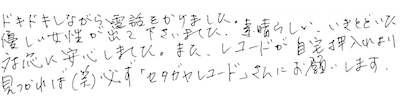 ドキドキしながら、電話をかけました。
優しい女性が出て下さいました。素晴らしい、いきとどいた
対応に安心しました。また、レコードが自宅押入れより
見つかれば(笑)必ず「セタガヤレコード」さんにお願いします。